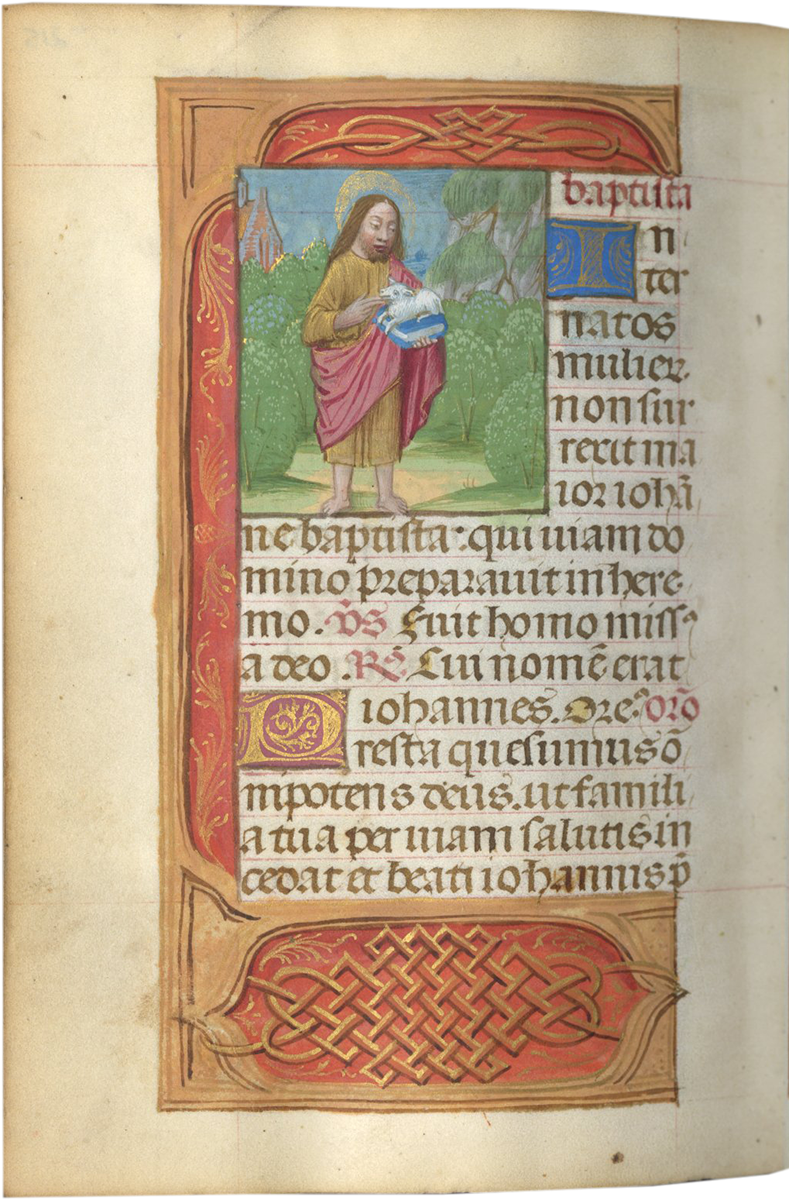 baptista
In
ter
natos
mulier
non sur
rexit ma
ior iohā
ne baptista: qui uiam do
mino preparauit in here
mo. V̄S Fuit homo miss⁹
a deo. R̄. Cui nomē erat
iohannes. Ore. orō
Presta quesumus ō
mpotens deus. ut famili
a tua per uiam salutis in
cedat et beati iohannis p̄